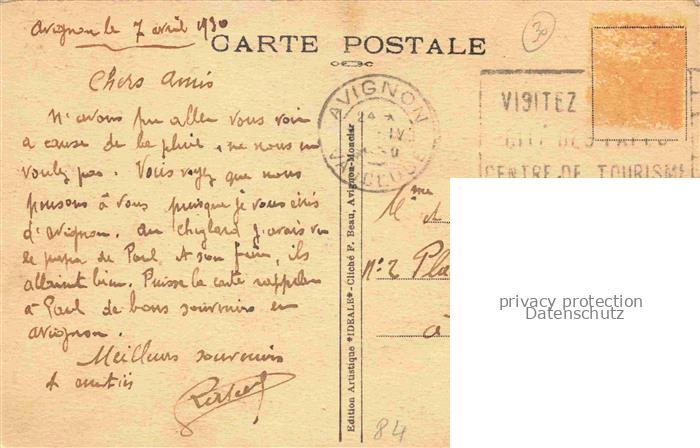 Avignon le 7 avril 1930
CARTE POSTALE
30
Chers Amis
N'avons pu aller vous voir
a cause de la pluie, ne nous en
voulez pas. Vous voyez que nous
pensons à vous puisque je vous écris
d'Avignon. Au Cheylard j'avais vu
le papa de Paul et son frère, ils
allaient bien. Puisse la carte rappeler
à Paul de bons souvenirs en
Avignon.
Meilleurs souvenirs
& amitiés
AVIGNON
24
IV
30
VAUCLUSE
VISITEZ
CITÉ DES PAPES
CENTRE DE TOURISME
Edition Artistique "IDEALE" - Cliché F. Beau, Avignon-Monclar
Mme et
N: 2 Pla
à
privacy protection
Datenschutz
84